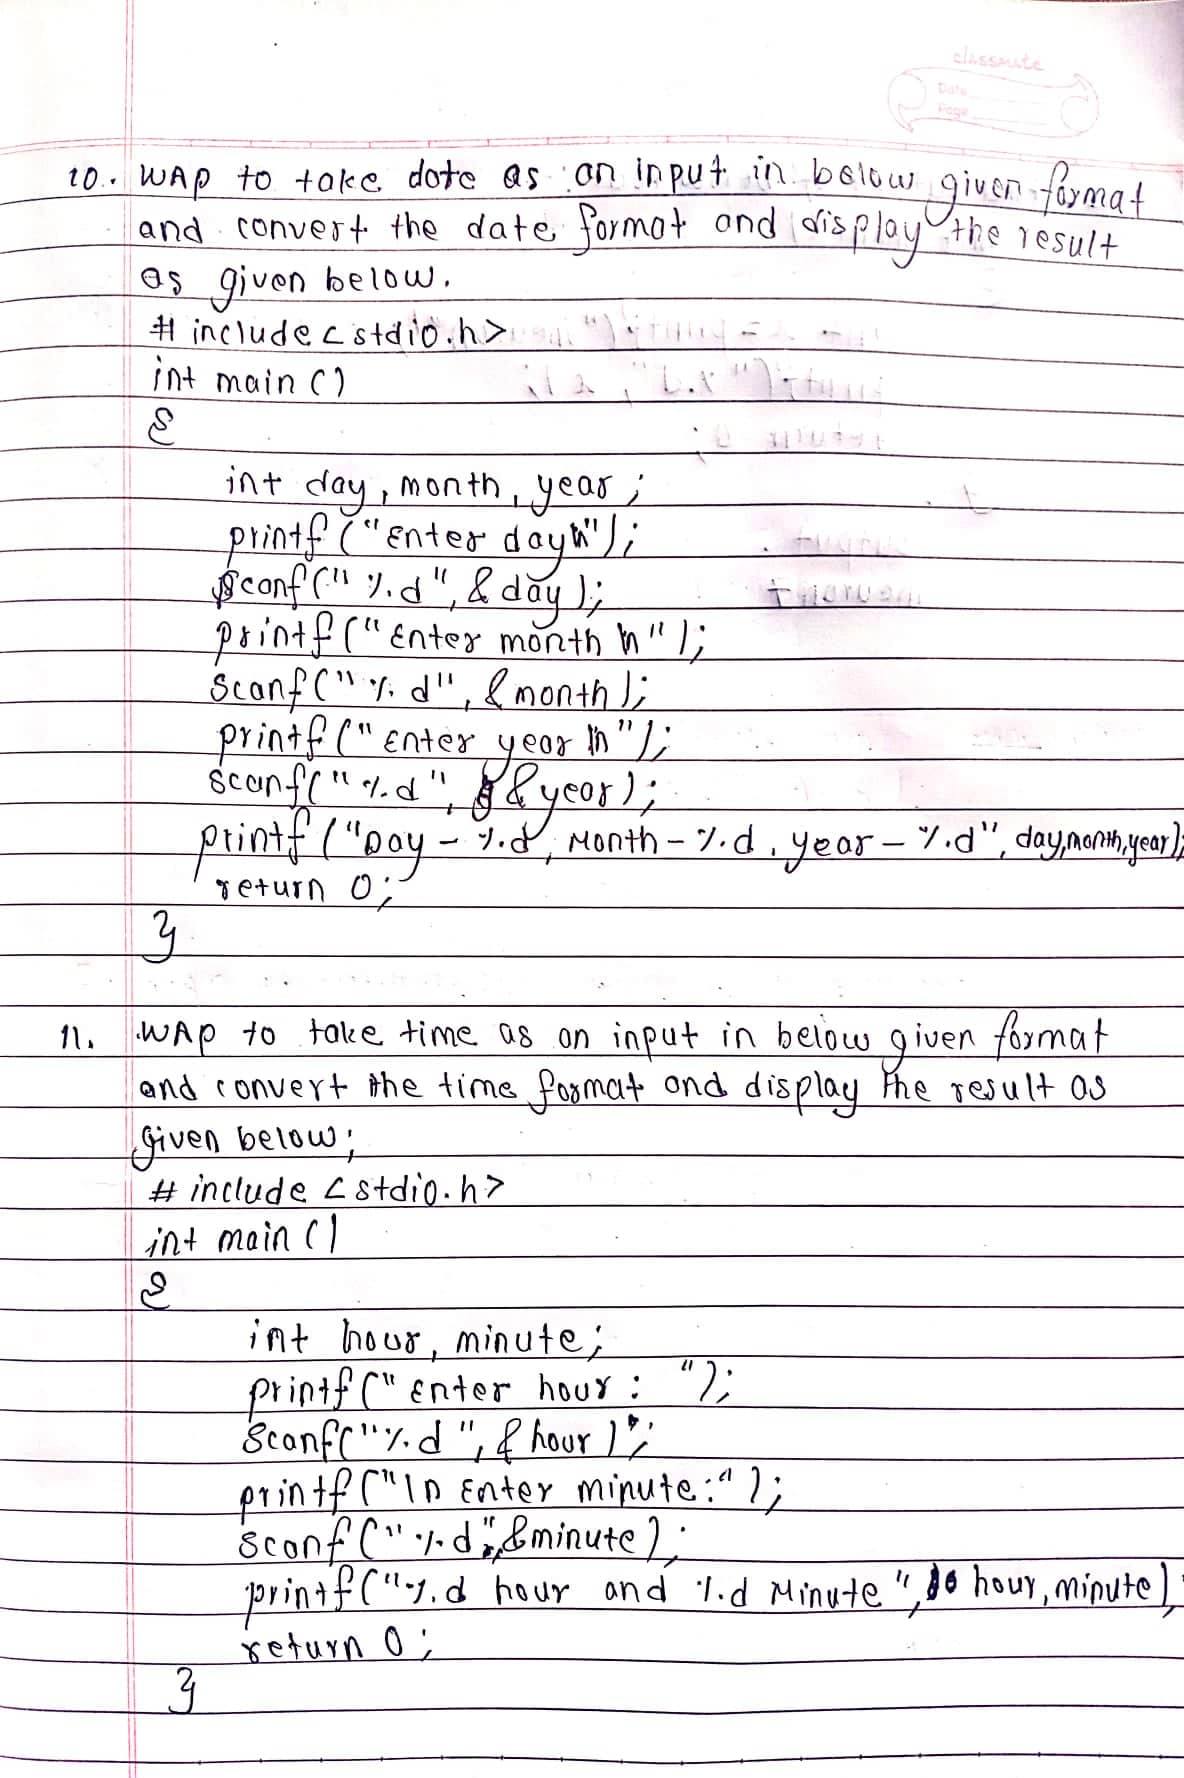 classmate
Date
Page
10. WAP to take date as an input in below given format
and convert the date format and display the result
as given below.
# include <stdio.h>
int main ()
{
int day, month, year;
printf ("Enter day\n");
scanf("%d", &day);
printf ("Enter month \n");
scanf("%d", &month);
printf ("Enter year \n");
scanf("%d", &year);
printf ("Day - %d, Month - %d, year - %d", day,month,year);
return 0;
}
11. WAP to take time as an input in below given format
and convert the time format and display the result as
given below;
# include <stdio.h>
int main ()
{
int hour, minute;
printf (" Enter hour : ");
scanf("%d ", &hour );
printf ("\n Enter minute:" );
scanf ("%d", &minute);
printf("%d hour and %d Minute ", hour, minute);
return 0;
}